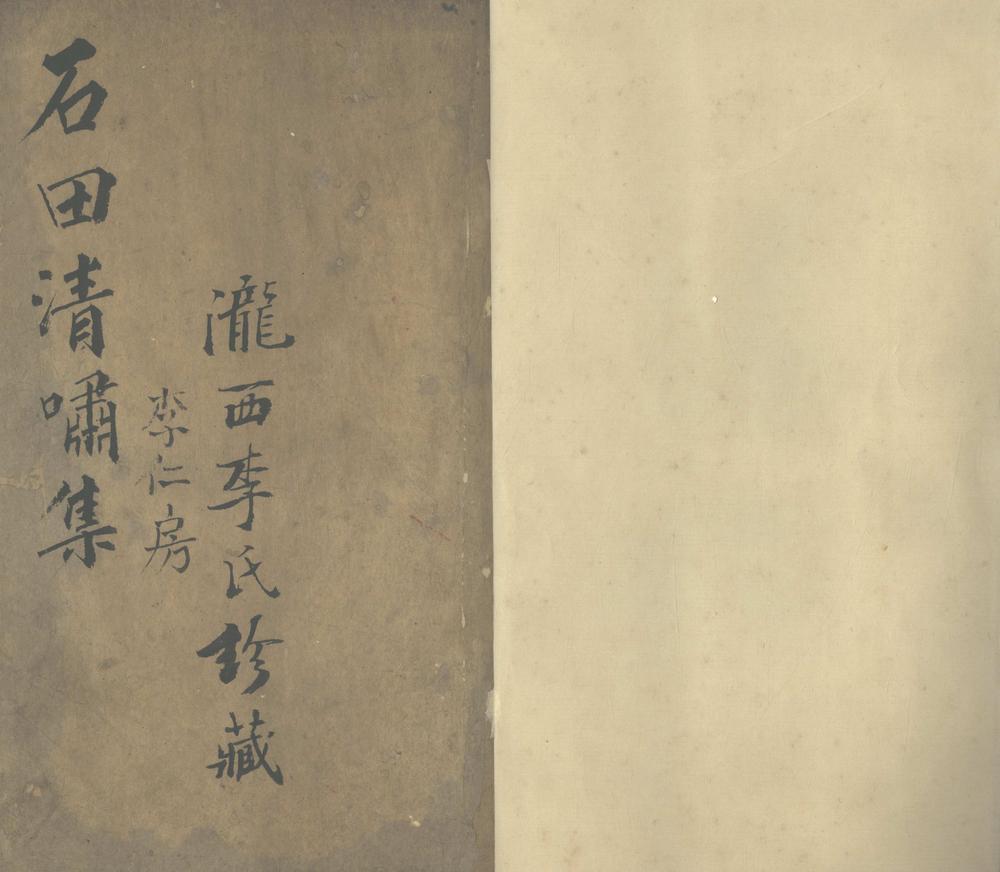 瀧西李氏珍藏
李仁房
石田清嘯集